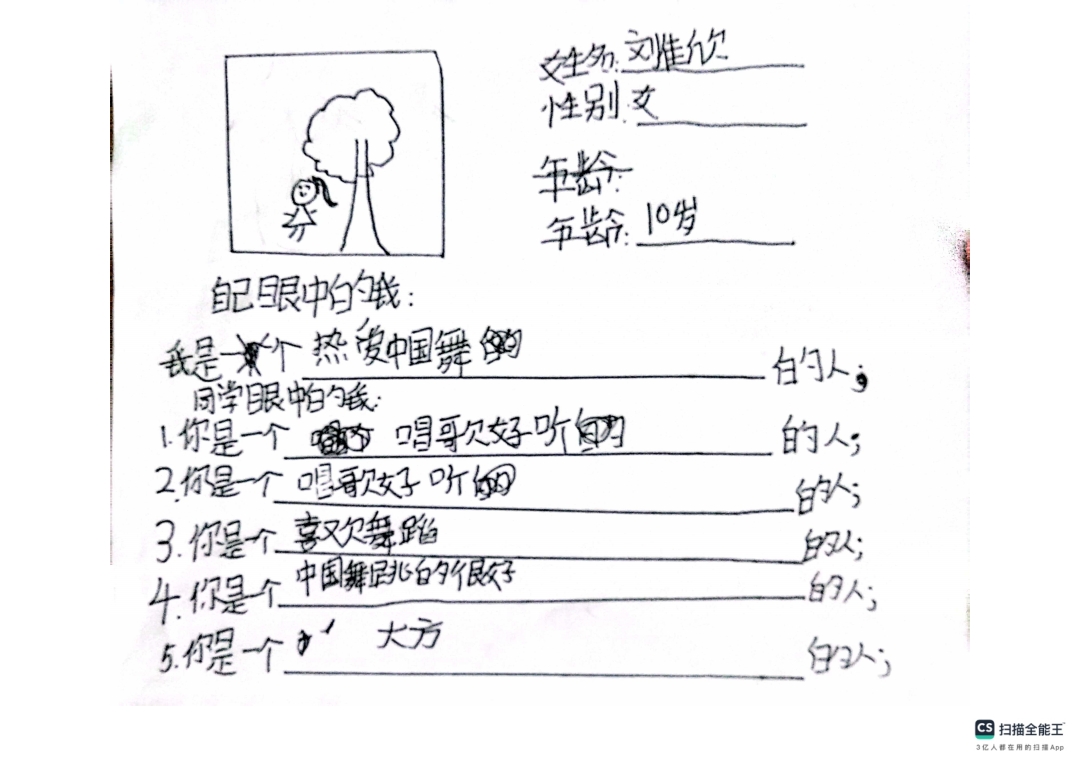 姓名:刘惟欣
性别:女
年龄:
年龄:10岁
自己眼中的我:
我是一个 热爱中国舞 的人;
同学眼中的我:
1.你是一个 唱歌好听 的人;
2.你是一个 唱歌好听 的人;
3.你是一个 喜欢舞蹈 的人;
4.你是一个 中国舞跳的很好 的人;
5.你是一个 大方 的人;
CS 扫描全能王
3亿人都在用的扫描App